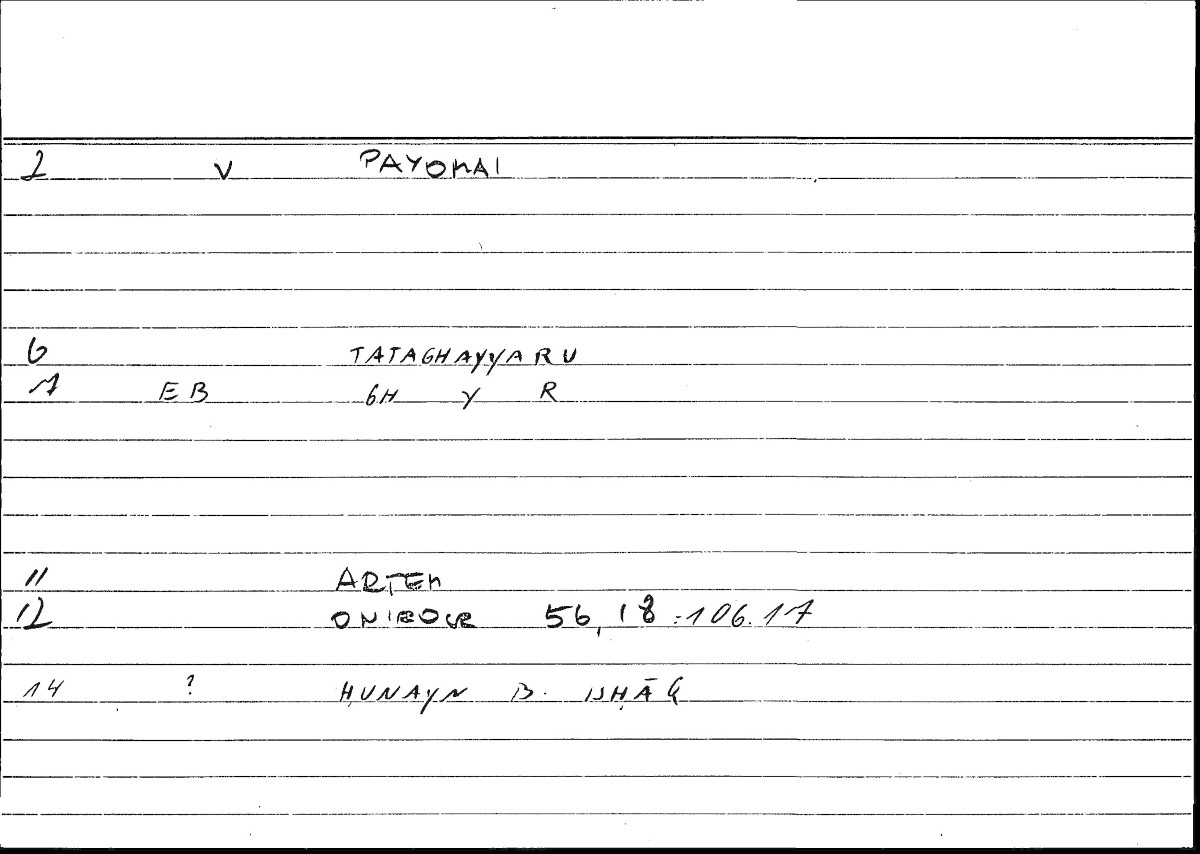 2 V PAYOMAI
6 TATAGHAYYARU
7 EB GH Y R
11 ARTEM
12 ONIROCR 56,18:106.17
14 ? ḤUNAYN B. ISḤĀQ